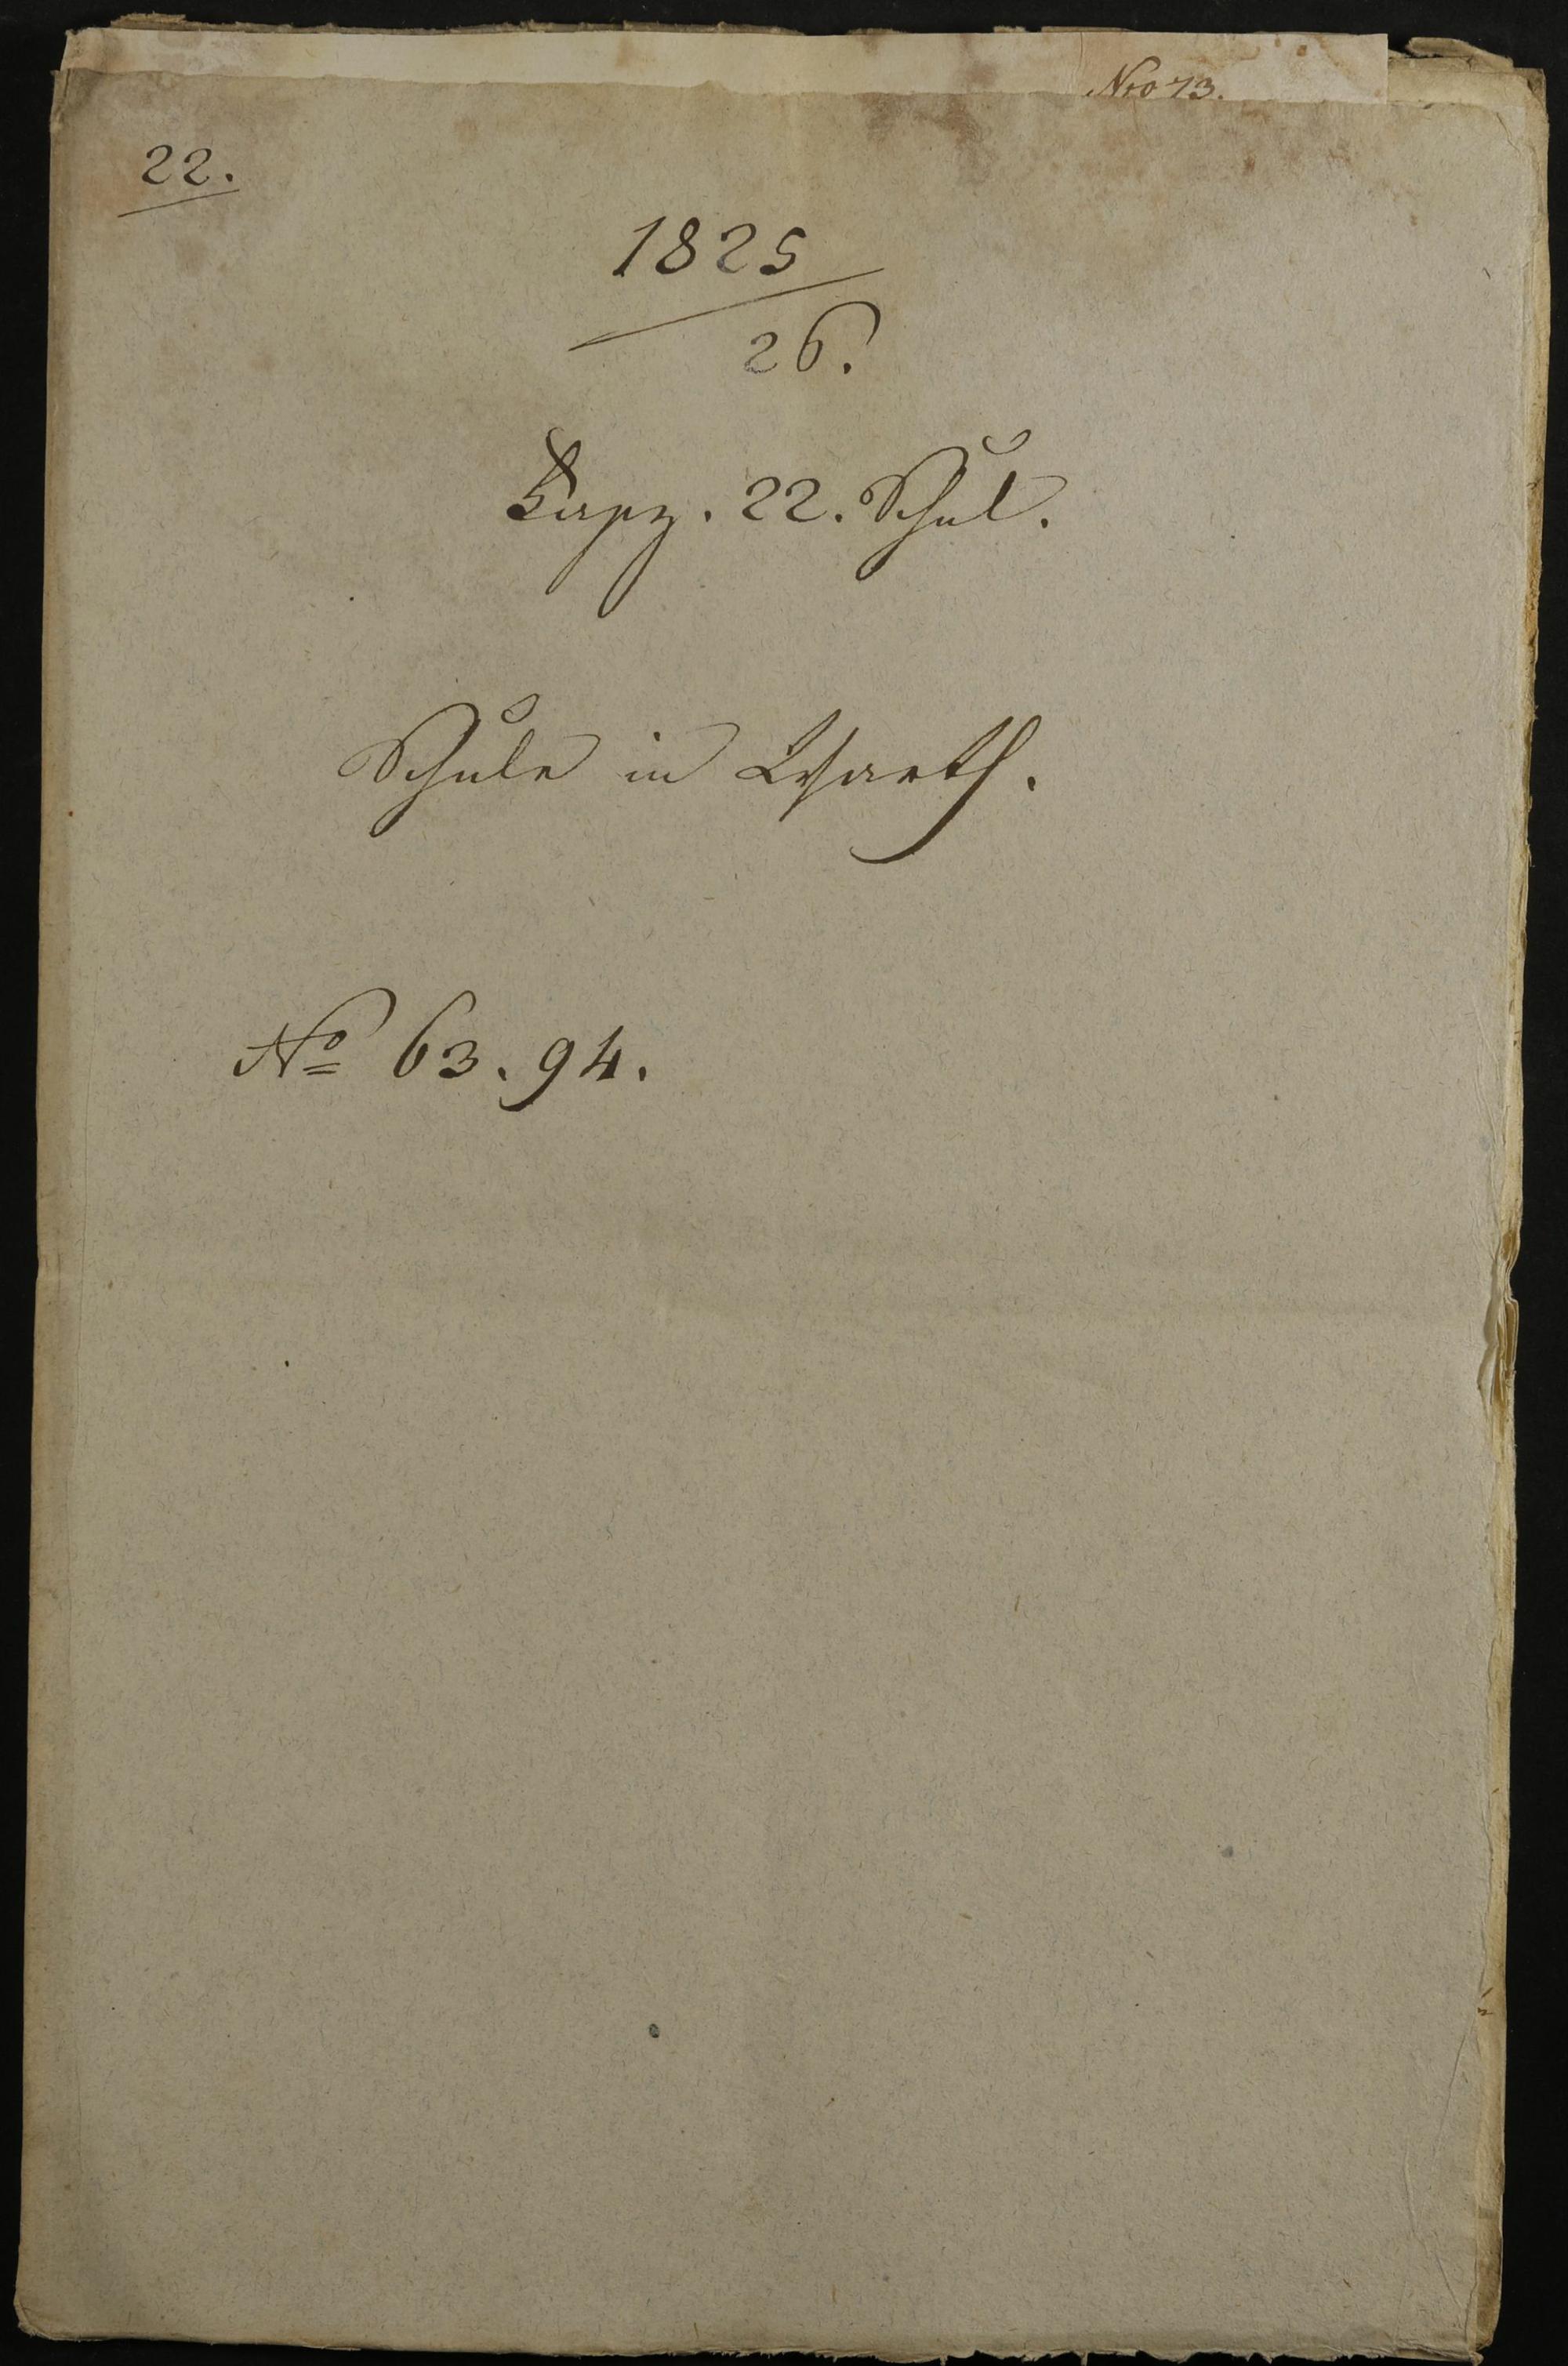 Nro 73.
22.
1825
26.
Fasz. 22. Schul.
Schule in Warth.
No 63. 94.